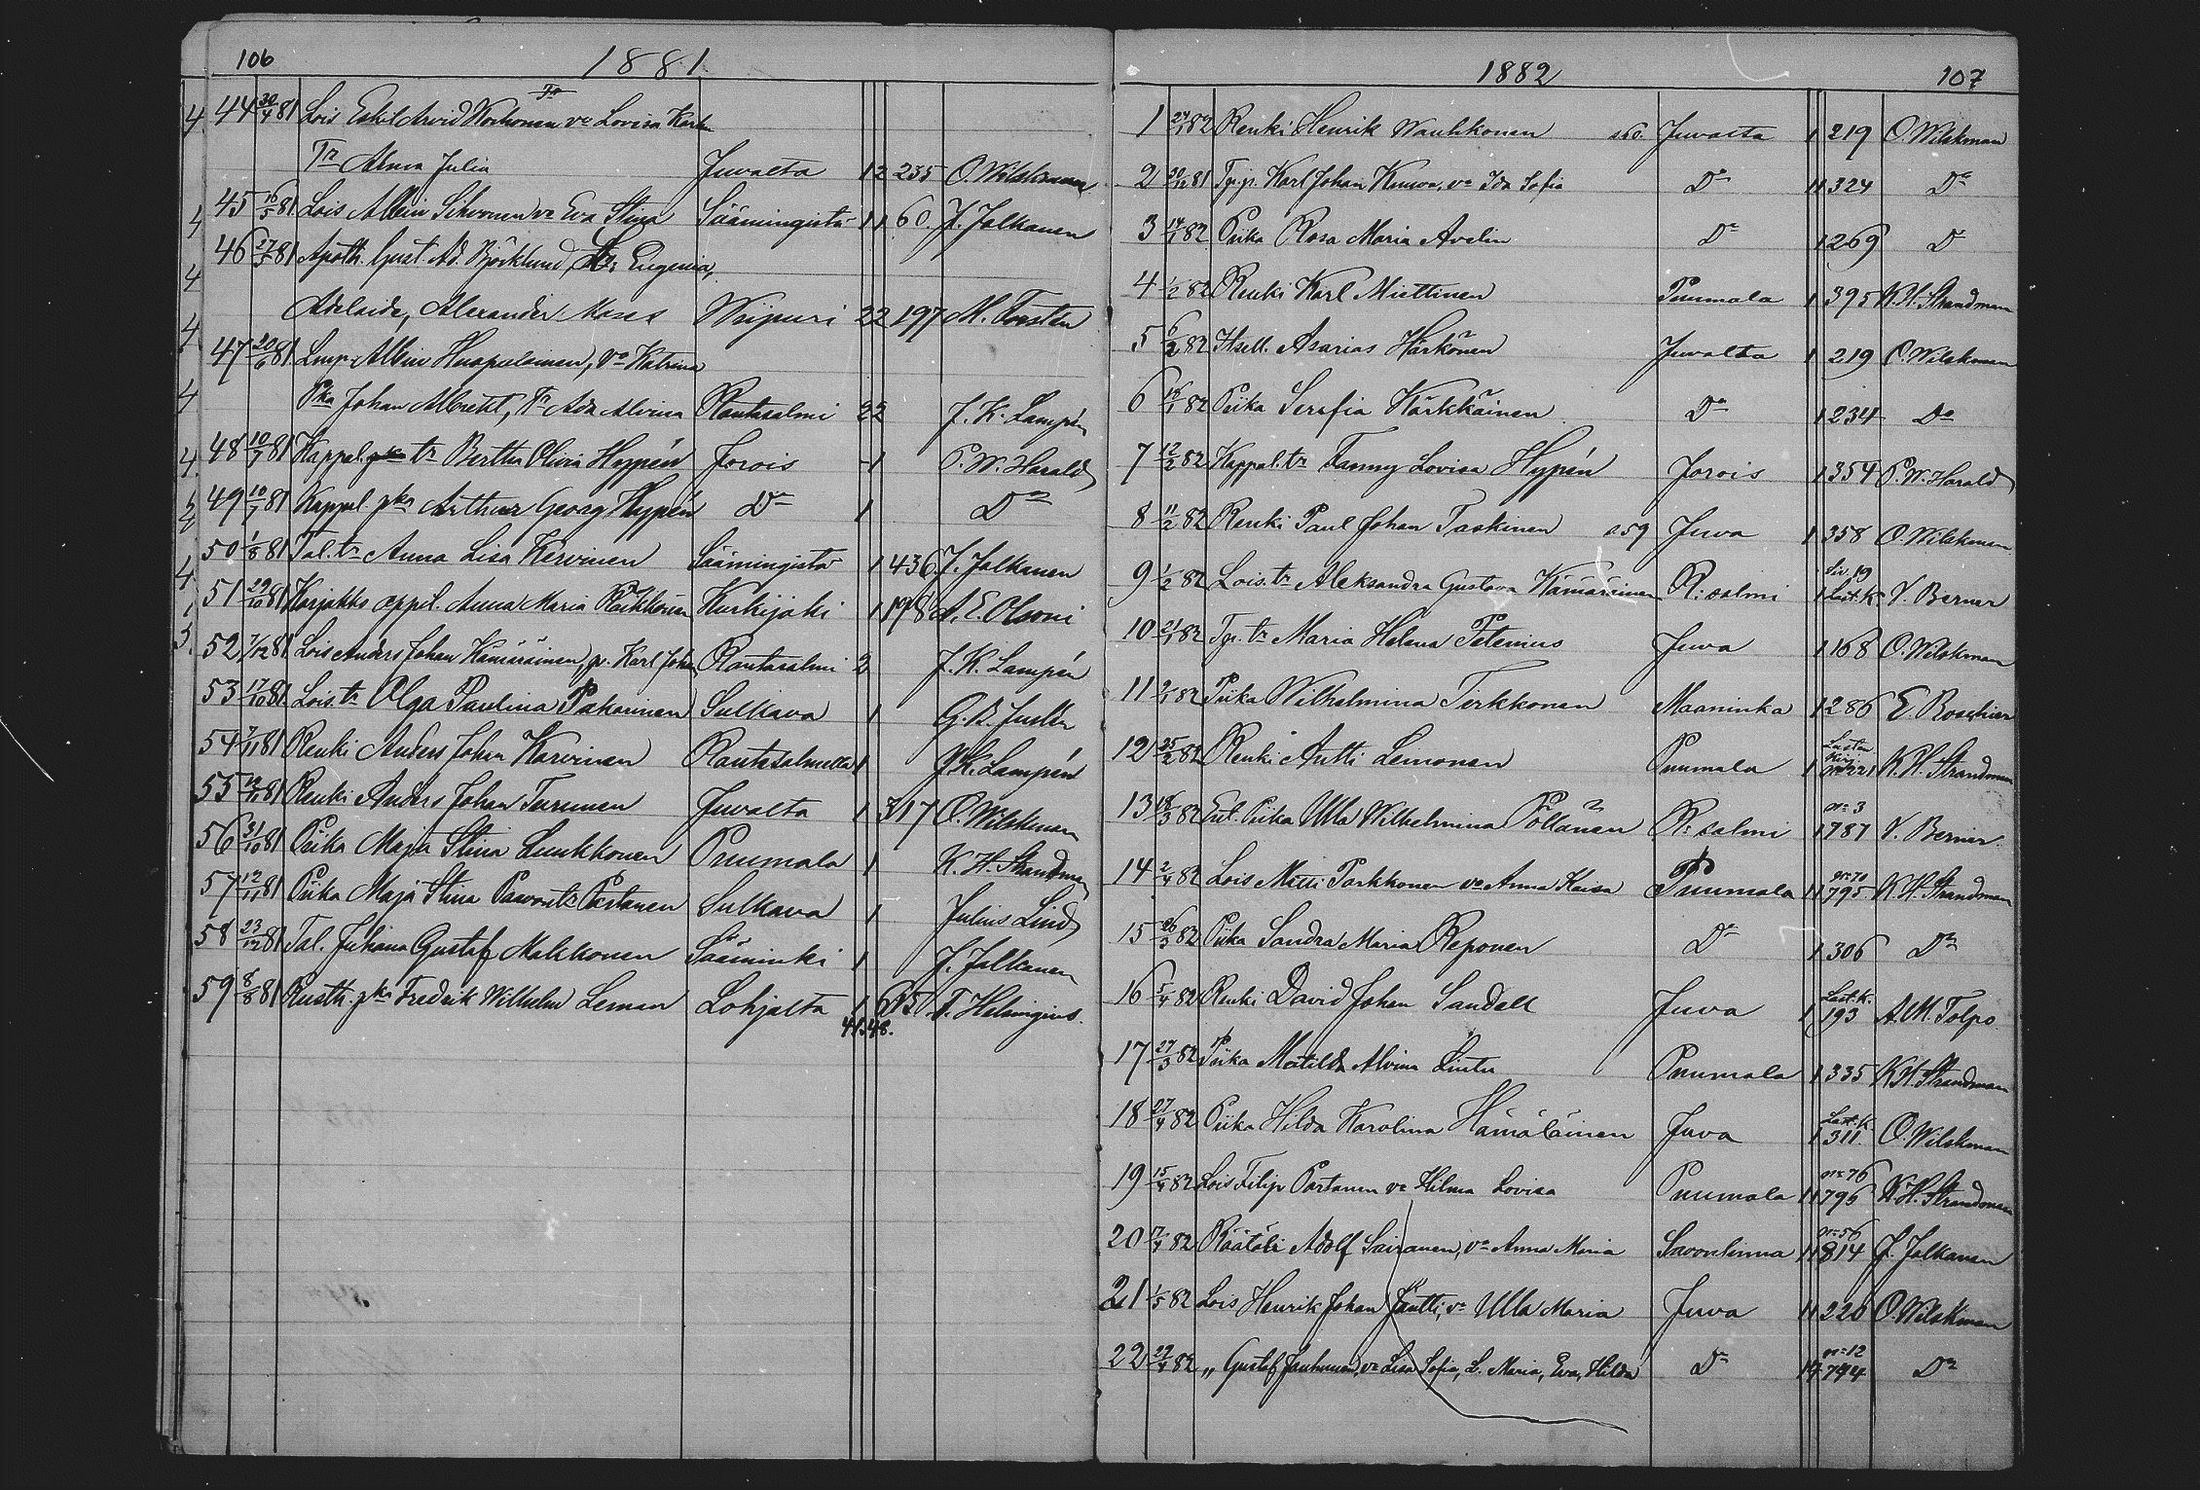 106 1881
44 30/4 81 Lois Eskil Arvid Korhonen vo Lovisa
Tr Alma Julia Juvalta 12 235 O. Wilskman
45 16/5 81 Lois Albin Sihvonen vo Eva Stina Sääminigistä 11 60. J. Jalkanen
46 27/5 81 Apoth. Gust. Ad. Björklund, Eugenia,
Adelaide, Alexander Moses Wiipuri 22 197 M. Forstén
47 20/6 81 Albin Huopalainen, vo Katrina
Pka Johan Albrekt, Tr Ada Alvina Rantasalmi 22 J. K. Lampén
48 10/7 81 Kappel. tr Bertha Olivia Hypén Jorois 1 P. W. Harald
49 10/7 81 Kappel. pka Arthur Georg Hypén Do 1 Do
50 1/8 81 Tal. tr Anna Lisa Kervinen Sääminigistä 1 436 J. Jalkanen
51 29/10 81 Karjakko oppil. Anna Maria Kurkijoki 1 198 A. E. Olsoni
52 7/12 81 Lois Anders Johan Hämäräinen, p. Karl Johan Rantasalmi 2 J. K. Lampén
53 17/10 81 Lois. tr Olga Paulina Pakarinen Sulkava 1 G. A. Juslén
54 7/11 81 Renki Anders Johan Karvinen Rantasalmella 1 J. K. Lampén
55 81 Renki Anders Johan Turunen Juvalta 1 317 O. Wilskman
56 31/10 81 Piika Maja Stina Luukkonen Puumala 1 K. H. Strandman
57 12/11 81 Piika Maja Stina Paavontr Partanen Sulkava 1 Julius Lind
58 23/12 81 Tal. Juhana Gustaf Malkkonen Sääminki 1 J. Jalkanen
59 8/8 81 Rusth. pka Fredrik Wilhelm Leman Lohjalta 1 615 F. Helsingius.
41.48.
1882 107
1 24/1 82 Renki Henrik Wauhkonen s60. Juvalta 1 219 O. Wilskman
2 20/12 81 Karl Johan Kinnu, vo Ida Sofia Do 11 324 Do
3 14/1 82 Piika Rosa Maria Avelin Do 1 269 Do
4 1/2 82 Renki Karl Miettinen Puumala 1 395 K. H. Strandman
5 6/2 82 Itsell. Asarias Härkönen Juvalta 1 219 O. Wilskman
6 16/1 82 Piika Serafia Kärkkäinen Do 1 234 Do
7 12/2 82 Kappal. tr Fanny Lovisa Hypén Jorois 1 354 P. W. Harald
8 11/2 82 Renki Paul Johan Taskinen s59 Juva 1 358 O. Wilskman
9 1/2 82 Lois. tr Aleksandra Gustava Hämäräinen R:salmi 1 Siv. 19 Last. K. V. Berner
10 21/1 82 Tp. tr Maria Helena Petenius Juva 1 168 O. Wilskman
11 2/1 82 Piika Wilhelmina Tirkkonen Maaninka 1 286 E. Roschier
12 25/2 82 Renki Antti Leinonen Puumala 1 Lasten Kirj. 221 K. H. Strandman
13 18/3 82 Ent. Piika Ulla Wilhelmina Pöllänen R:salmi no 3 1 787 V. Berner.
14 2/4 82 Lois Matti Parkkonen vo Anna Kaisa Puumala no 70 11 795 K. H. Strandman
15 26/3 82 Piika Sandra Maria Reponen Do 1 306 Do
16 5/4 82 Renki David Johan Sandell Juva Last. K. 1 193 A. M. Tolpo
17 27/3 82 Piika Matilda Alvina Lintu Puumala 1 335 K. H. Strandman
18 27/4 82 Piika Hilda Karolina Hämäläinen Juva Last. K. 1 311. O. Wilskman
19 15/4 82 Lois Filip Partanen vo Hilma Lovisa Puumala no 76 11 796 K. H. Strandman
20 7/4 82 Räätäli Adolf Sairanen, vo Anna Maria Savonlinna no 56 11 814 J. Jalkanen
21 1/5 82 Lois Henrik Johan Jantti, vo Ulla Maria Juva 11 220 O. Wilskman
22 29/4 82 „ Gustaf Jauhiainen, vo Lisa Sofia, L. Maria, Eva, Hilda Do no 12 14 744 Do